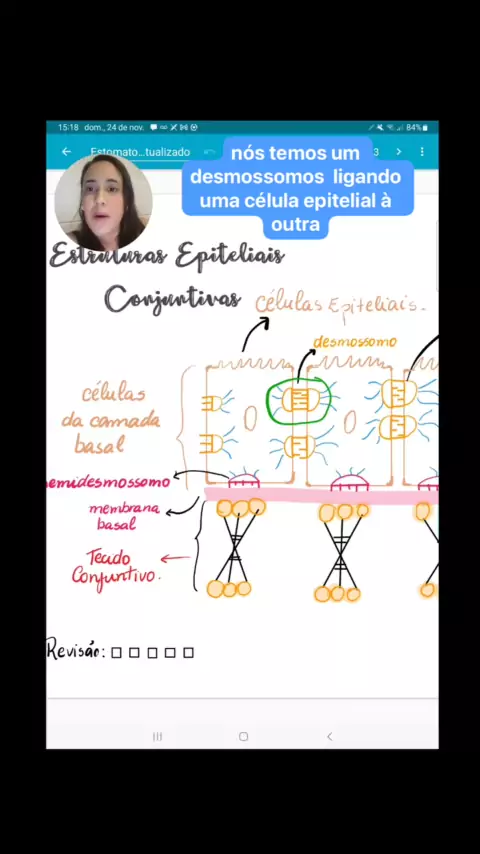 15:18 dom., 24 de nov.
84%
Estomato...tualizado
3
nós temos um
desmossomos ligando
uma célula epitelial à
outra
Estruturas Epiteliais
Conjuntivas
Células Epiteliais.
desmossomo
células
da camada
basal
emidesmossomo
membrana
basal
Tecido
Conjuntivo.
Revisão: